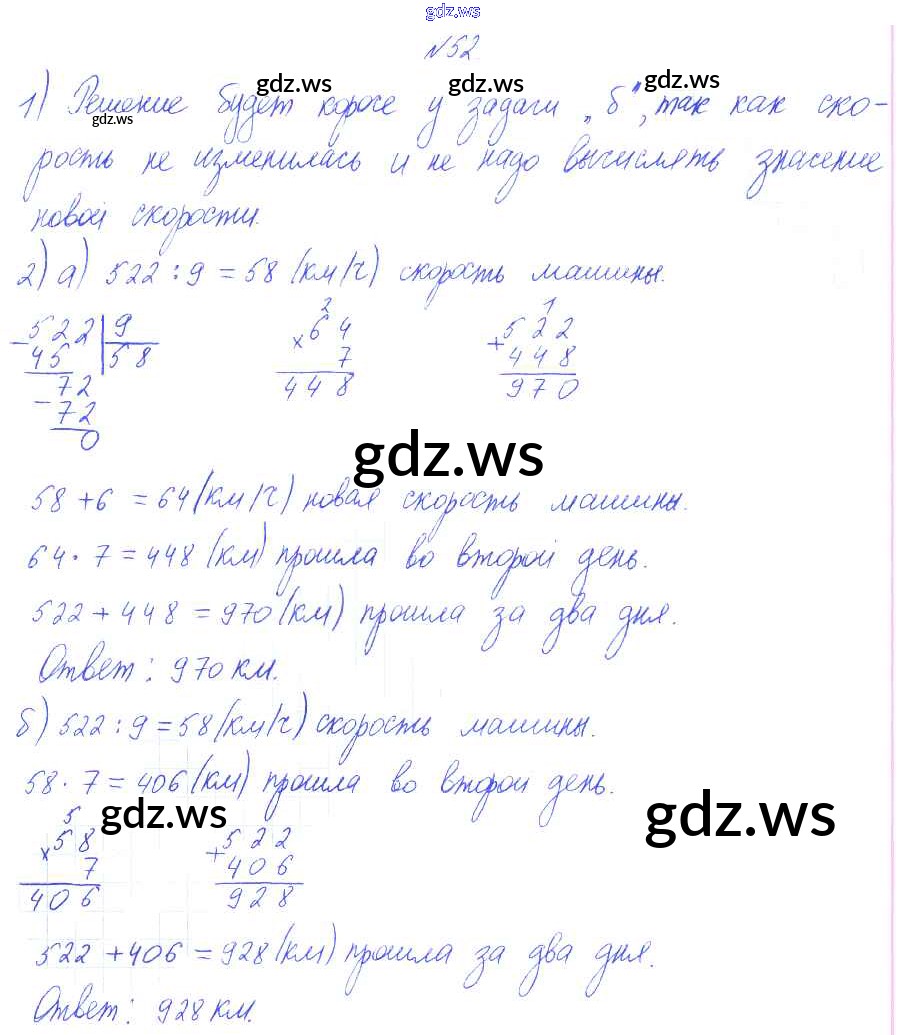 gdz.ws
№52.
gdz.ws gdz.ws gdz.ws
1) Решение будет короче у задачи „б", так как ско-
gdz.ws
рость не изменилась и не надо вычислять значение
новой скорости.
2) а) 522 : 9 = 58 (км/ч) скорость машины.
2 1
− 522 | 9 × 64 + 522
45 | 58 7 448
72 448 970
− 72
0
gdz.ws
58 + 6 = 64 (км/ч) новая скорость машины.
64 · 7 = 448 (км) прошла во второй день.
522 + 448 = 970 (км) прошла за два дня.
Ответ: 970 км.
б) 522 : 9 = 58 (км/ч) скорость машины.
58 · 7 = 406 (км) прошла во второй день.
5 gdz.ws gdz.ws
× 58 + 522
7 406
406 928
522 + 406 = 928 (км) прошла за два дня.
Ответ: 928 км.